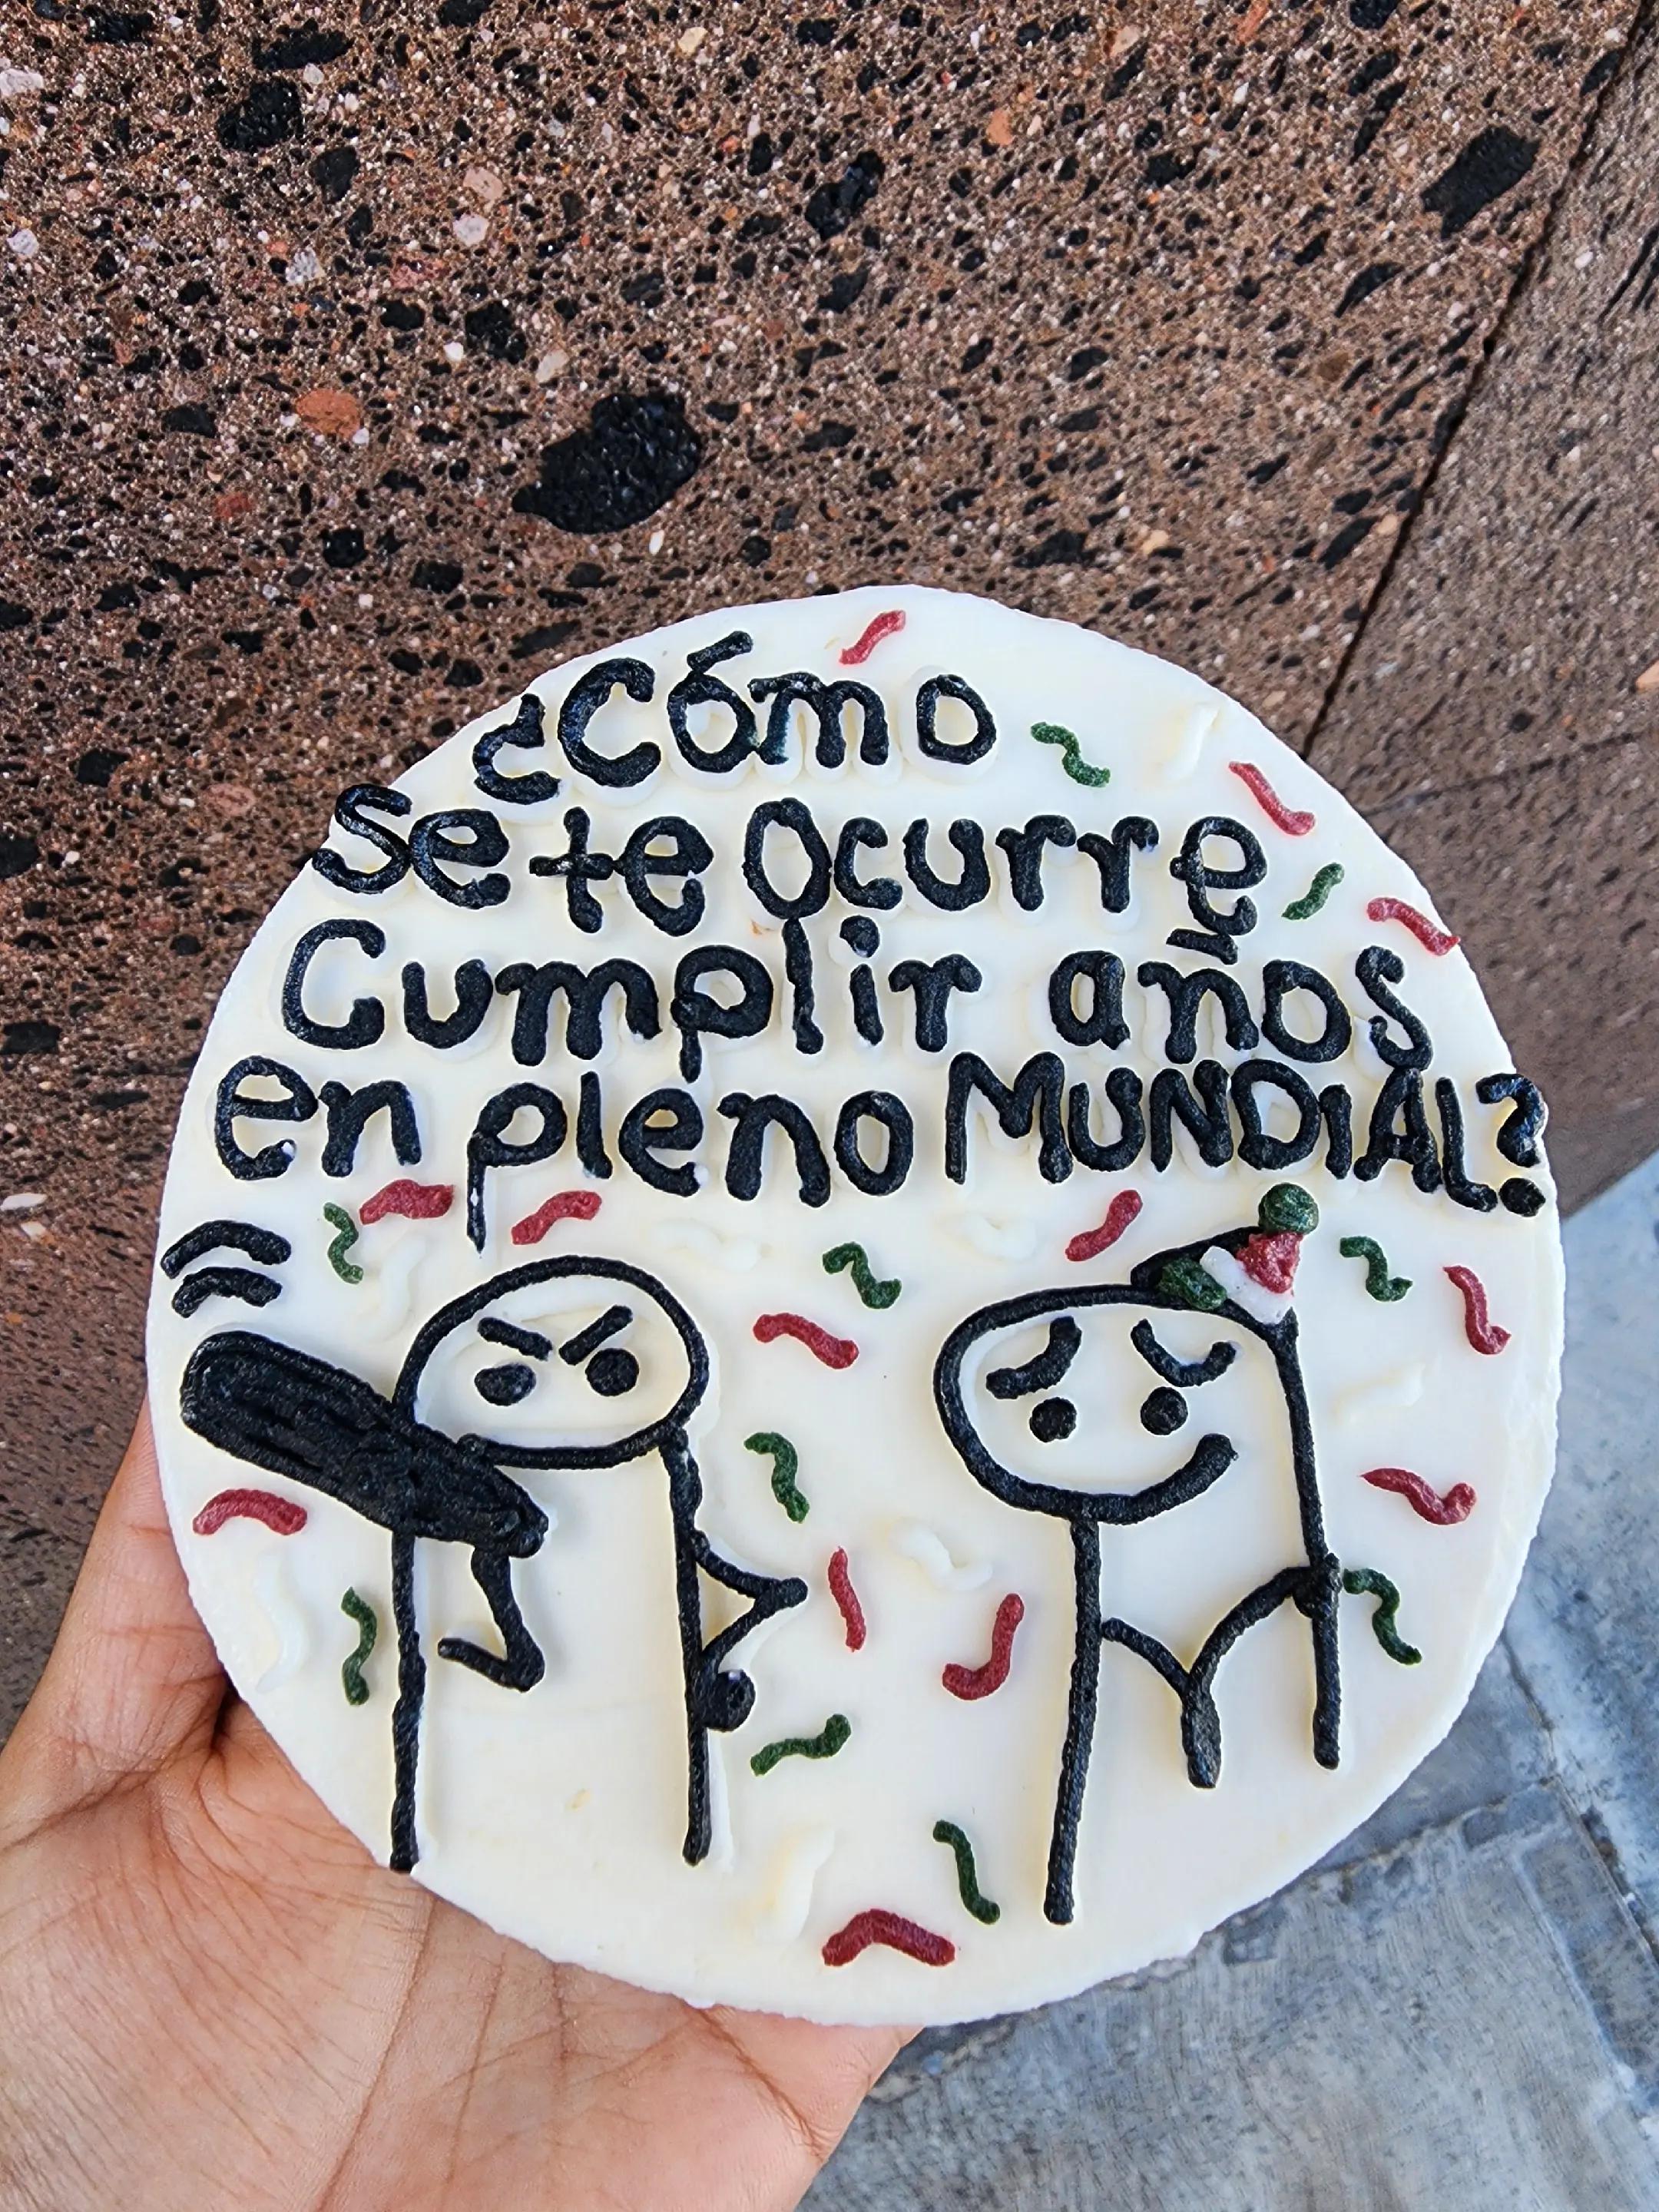 ¿Cómo
se te Ocurre
Cumplir años
en pleno MUNDIAL?